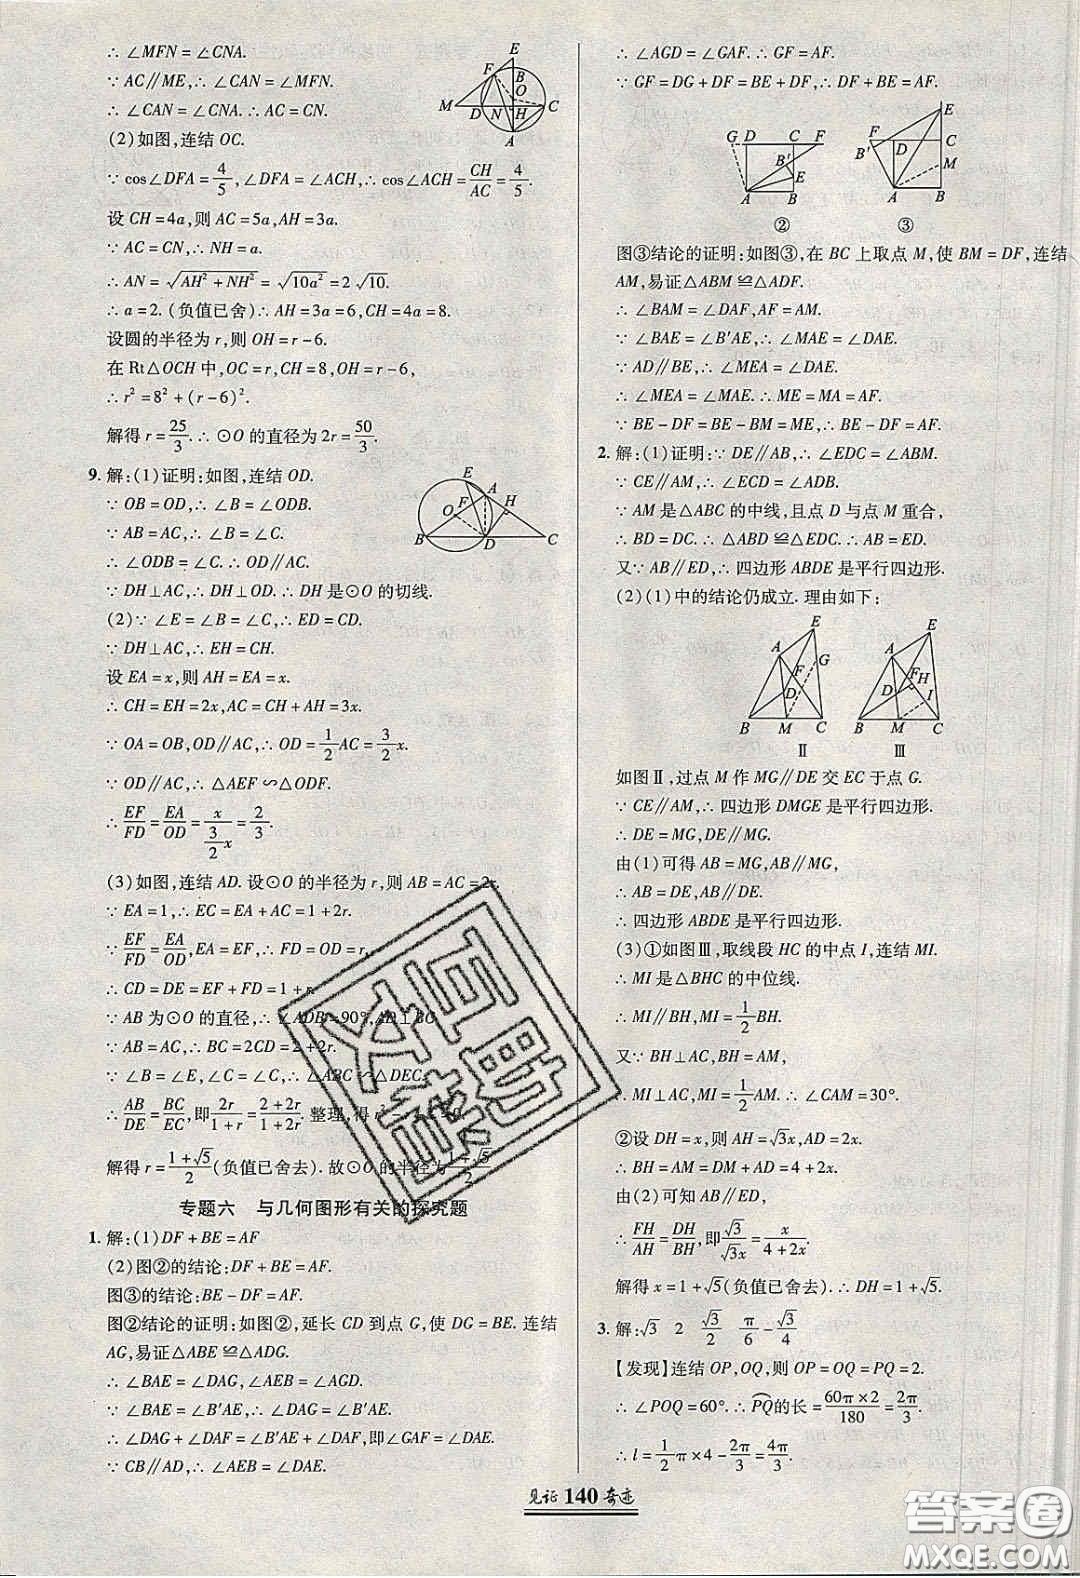 ∴ ∠MFN = ∠CNA.
∵ AC∥ME,∴ ∠CAN = ∠MFN.
∴ ∠CAN = ∠CNA. ∴ AC = CN.
(2)如图,连结 OC.
∵ cos∠DFA = 4/5, ∠DFA = ∠ACH,∴ cos∠ACH = CH/AC = 4/5.
设 CH = 4a,则 AC = 5a,AH = 3a.
∵ AC = CN,∴ NH = a.
∴ AN = √(AH² + NH²) = √(10a²) = 2√10.
∴ a = 2. (负值已舍)∴ AH = 3a = 6,CH = 4a = 8.
设圆的半径为 r,则 OH = r - 6.
在 Rt△OCH 中,OC = r,CH = 8,OH = r - 6,
∴ r² = 8² + (r - 6)².
解得 r = 25/3. ∴ ⊙O 的直径为 2r = 50/3.
E F B O M D N H C A
9. 解:(1)证明:如图,连结 OD.
∵ OB = OD,∴ ∠B = ∠ODB.
∵ AB = AC,∴ ∠B = ∠C.
∴ ∠ODB = ∠C. ∴ OD∥AC.
∵ DH⊥AC,∴ DH⊥OD. ∴ DH 是⊙O 的切线.
(2)∵ ∠E = ∠B = ∠C,∴ ED = CD.
∵ DH⊥AC,∴ EH = CH.
设 EA = x,则 AH = EA = x.
∴ CH = EH = 2x,AC = CH + AH = 3x.
∵ OA = OB,OD∥AC,∴ OD = 1/2 AC = 3/2 x.
∵ OD∥AC,∴ △AEF ∽ △ODF.
∴ EF/FD = EA/OD = x/(3/2 x) = 2/3.
E A F H O B D C
(3)如图,连结 AD. 设⊙O 的半径为 r,则 AB = AC = 2r.
∵ EA = 1,∴ EC = EA + AC = 1 + 2r.
∵ EF/FD = EA/OD, EA = EF,∴ FD = OD = r.
∴ CD = DE = EF + FD = 1 + r.
∵ AB 为⊙O 的直径,∴ ∠ADB = 90°,AD⊥BC
∵ AB = AC,∴ BC = 2CD = 2 + 2r.
∵ ∠B = ∠E,∠C = ∠C,∴ △ABC ∽ △DEC.
∴ AB/DE = BC/EC,即 2r/(1 + r) = (2 + 2r)/(1 + 2r). 整理,得
解得 r = (1 + √5)/2 (负值已舍去). 故⊙O 的半径为 (1 + √5)/2
专题六 与几何图形有关的探究题
1. 解:(1)DF + BE = AF
(2)图②的结论:DF + BE = AF.
图③的结论:BE - DF = AF.
图②结论的证明:如图②,延长 CD 到点 G,使 DG = BE. 连结
AG,易证△ABE ≌ △ADG.
∴ ∠BAE = ∠DAG,∠AEB = ∠AGD.
∵ ∠BAE = ∠B′AE,∴ ∠DAG = ∠B′AE.
∴ ∠DAG + ∠DAF = ∠B′AE + ∠DAF,即∠GAF = ∠DAE.
∵ CB∥AD,∴ ∠AEB = ∠DAE.
∴ ∠AGD = ∠GAF. ∴ GF = AF.
∵ GF = DG + DF = BE + DF,∴ DF + BE = AF.
G D C F B′ E A B
②
F D C E B′ M A B
③
图③结论的证明:如图③,在 BC 上取点 M,使 BM = DF,连结
AM,易证△ABM ≌ △ADF.
∴ ∠BAM = ∠DAF,AF = AM.
∵ ∠BAE = ∠B′AE,∴ ∠MAE = ∠DAE.
∵ AD∥BE,∴ ∠MEA = ∠DAE.
∴ ∠MEA = ∠MAE. ∴ ME = MA = AF.
∵ BE - DF = BE - BM = ME,∴ BE - DF = AF.
2. 解:(1)证明:∵ DE∥AB,∴ ∠EDC = ∠ABM.
∵ CE∥AM,∴ ∠ECD = ∠ADB.
∵ AM 是△ABC 的中线,且点 D 与点 M 重合,
∴ BD = DC. ∴ △ABD ≌ △EDC. ∴ AB = ED.
又∵ AB∥ED,∴ 四边形 ABDE 是平行四边形.
(2)(1)中的结论仍成立. 理由如下:
E A F G D B M C
Ⅱ
E A F H D I B M C
Ⅲ
如图Ⅱ,过点 M 作 MG∥DE 交 EC 于点 G.
∵ CE∥AM,∴ 四边形 DMGE 是平行四边形.
∴ DE = MG,DE∥MG.
由(1)可得 AB = MG,AB∥MG,
∴ AB = DE,AB∥DE.
∴ 四边形 ABDE 是平行四边形.
(3)①如图Ⅲ,取线段 HC 的中点 I,连结 MI.
∴ MI 是△BHC 的中位线.
∴ MI∥BH,MI = 1/2 BH.
又∵ BH⊥AC,BH = AM,
∴ MI⊥AC,MI = 1/2 AM. ∴ ∠CAM = 30°.
②设 DH = x,则 AH = √3x,AD = 2x.
∴ BH = AM = DM + AD = 4 + 2x.
由(2)可知
FH/AH = DH/BH,即 √3/√3x = x/(4 + 2x).
解得 x = 1 + √5(负值已舍去). ∴ DH = 1 + √5.
3. 解:√3 2 √3/2 π/6 - √3/4
【发现】连结 OP,OQ,则 OP = OQ = PQ = 2.
∴ ∠POQ = 60°. ∴ PQ的长 = 60π×2/180 = 2π/3.
∴ l = 1/2 π×4 - 2π/3 = 4π/3.
见证 140 奇迹
互助文档
答案圈
MXQE.COM